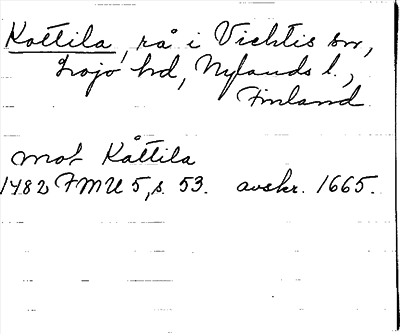 Kottila, rå i Vichtis sn,
Lojo hd, Nylands l.,
Finland
mot Kåttila
1482 FMU 5, s. 53. avskr. 1665.